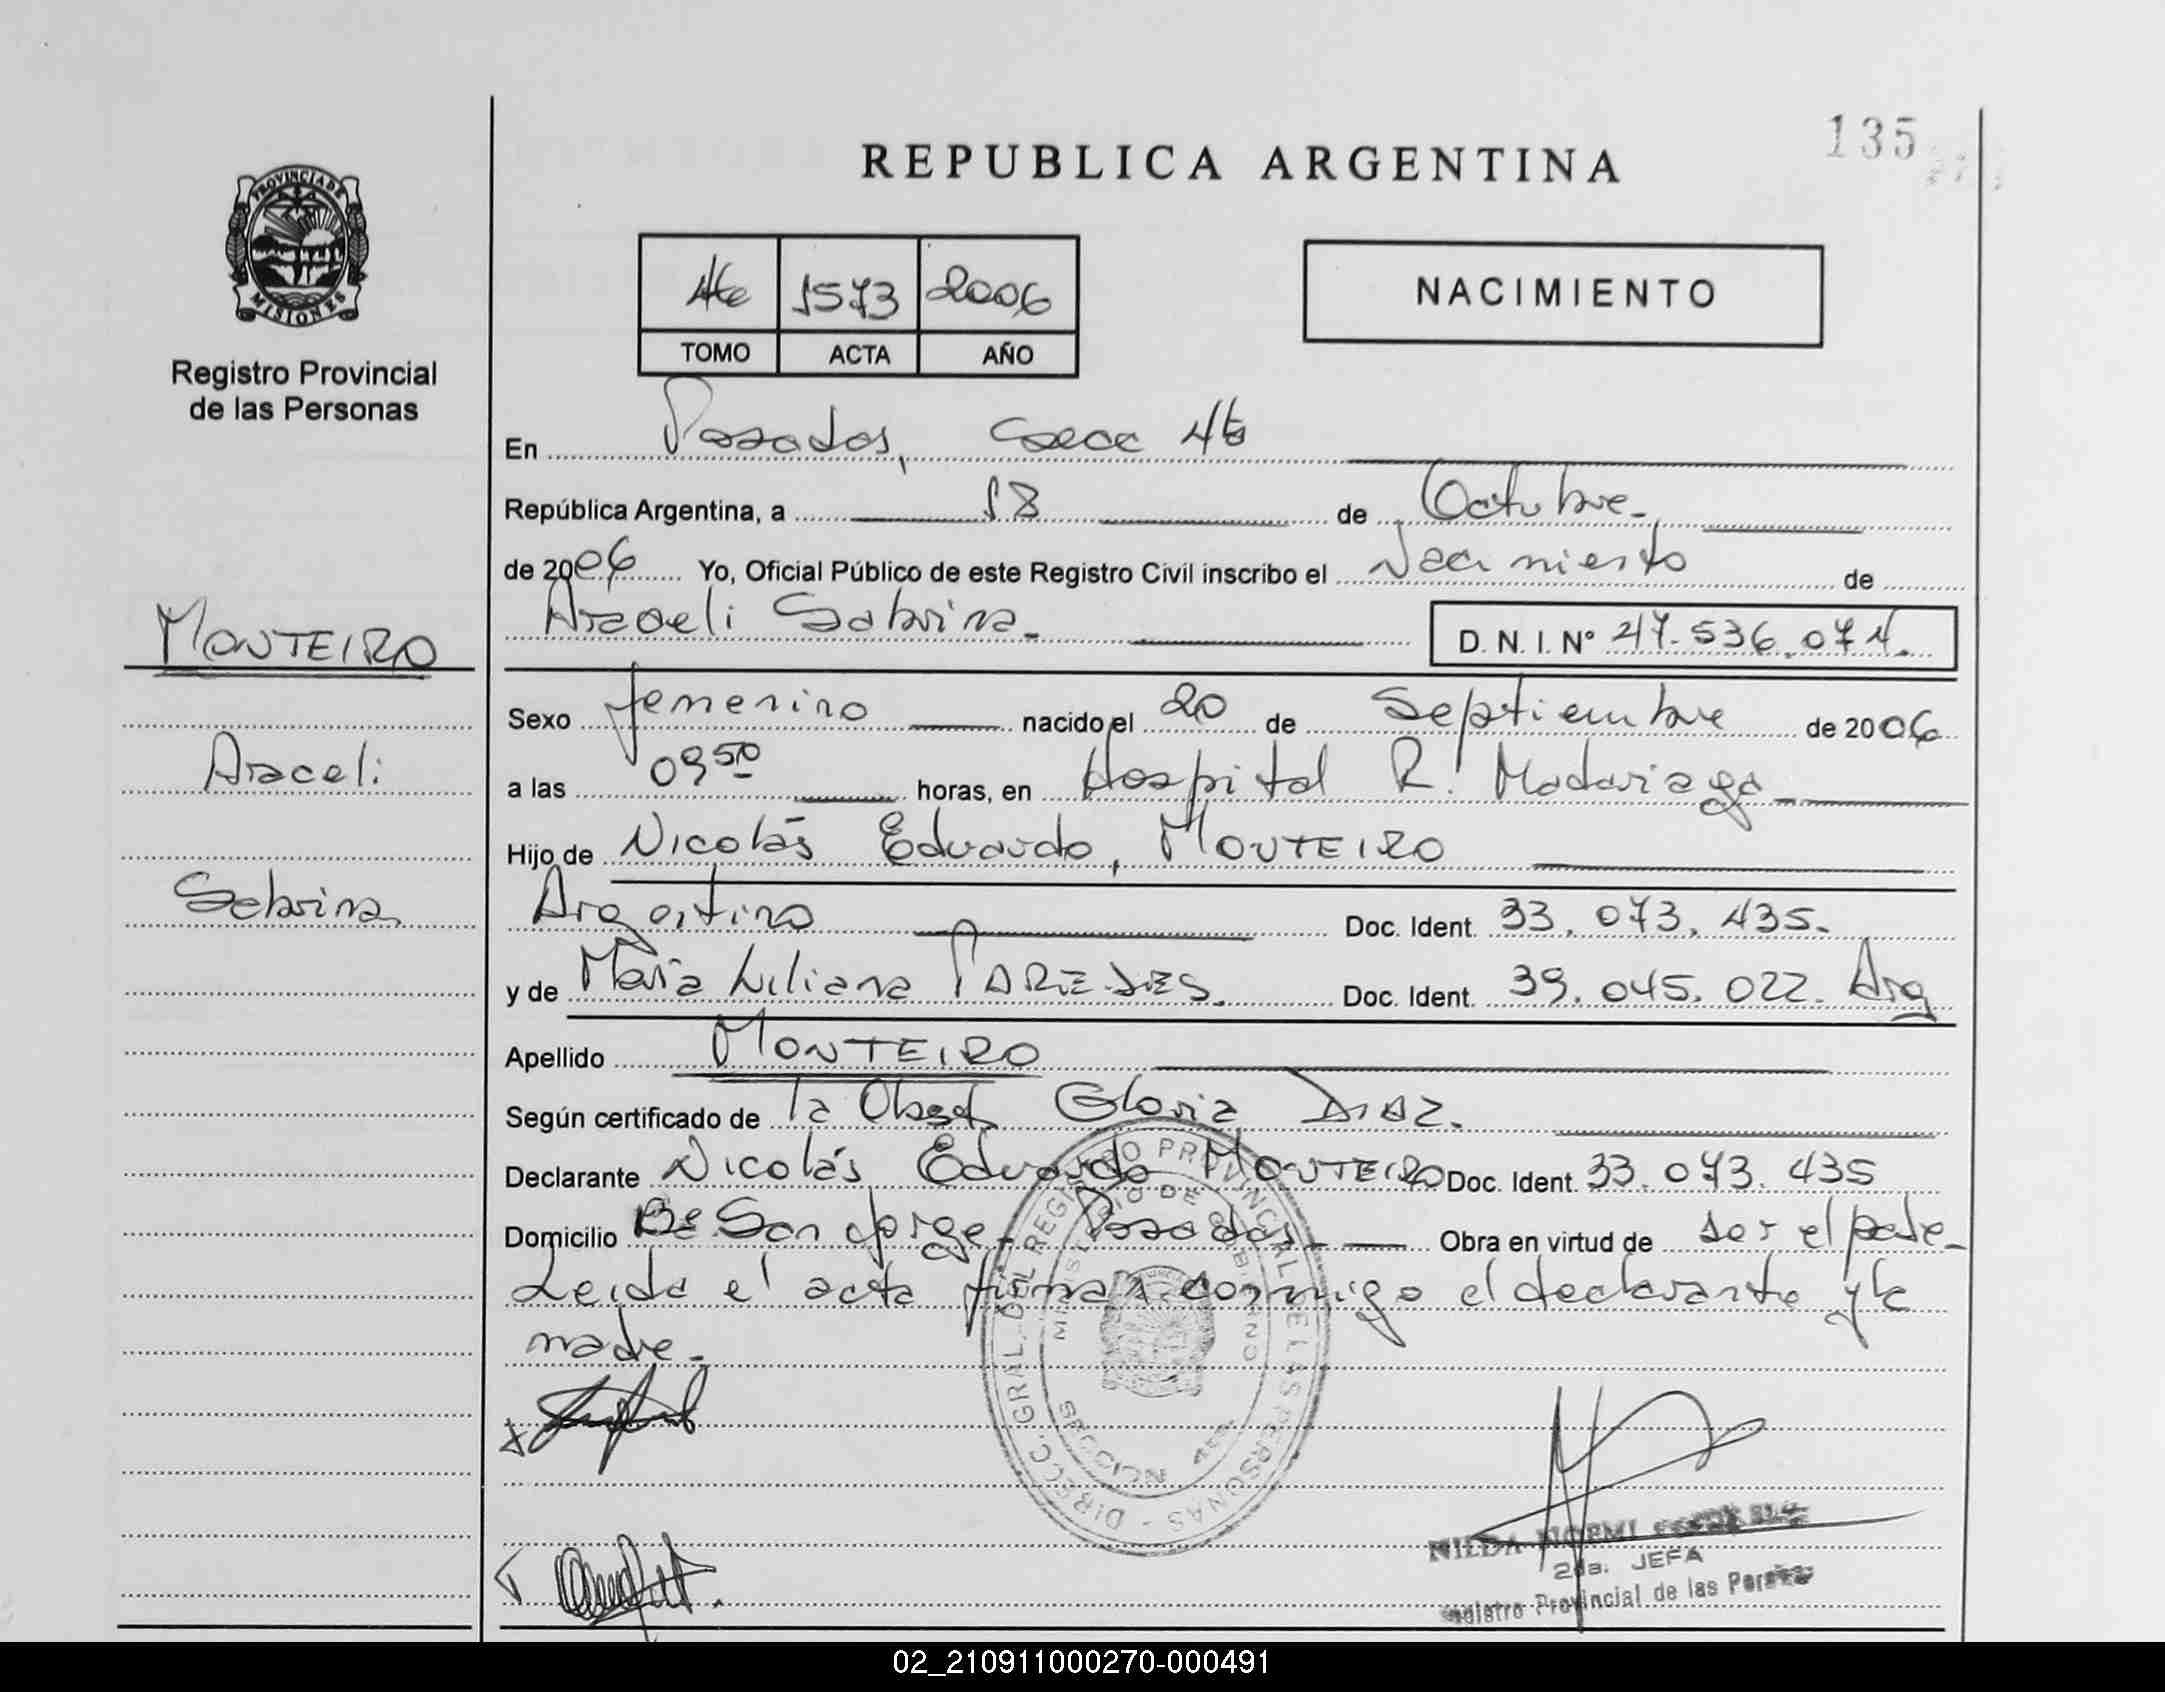 REPUBLICA ARGENTINA
135
PROVINCIA DE
MISIONES
Registro Provincial
de las Personas
1573 2006
TOMO ACTA AÑO
NACIMIENTO
En Posadas, Secc
República Argentina, a 18 de Octubre.
de 2006 Yo, Oficial Público de este Registro Civil inscribo el Nacimiento de
Araceli Sabrina. D. N. I. Nº 47.536.071.
MONTEIRO
Araceli
Sabrina
Sexo femenino nacido el 20 de Septiembre de 2006
a las 09 50 horas, en Hospital R. Madariaga
Hijo de Nicolás Eduardo, MONTEIRO
Argentino Doc. Ident. 33.073.435.
y de María Liliana PAREDES. Doc. Ident. 39.045.022. Arg
Apellido MONTEIRO
Según certificado de la Obst. Gloria DIAZ.
Declarante Nicolás Eduardo MONTEIRO Doc. Ident. 33.073.435
Domicilio Bº San Jorge - Posadas - Obra en virtud de ser el padre-
Leida el acta firman conmigo el declarante y la
madre.
DIRECC. GRAL. DEL REGISTRO PROVINCIAL DE LAS PERSONAS
MINISTERIO DE GOBIERNO
NILDA NOEMI
2da. JEFA
Registro Provincial de las Personas
02_210911000270-000491